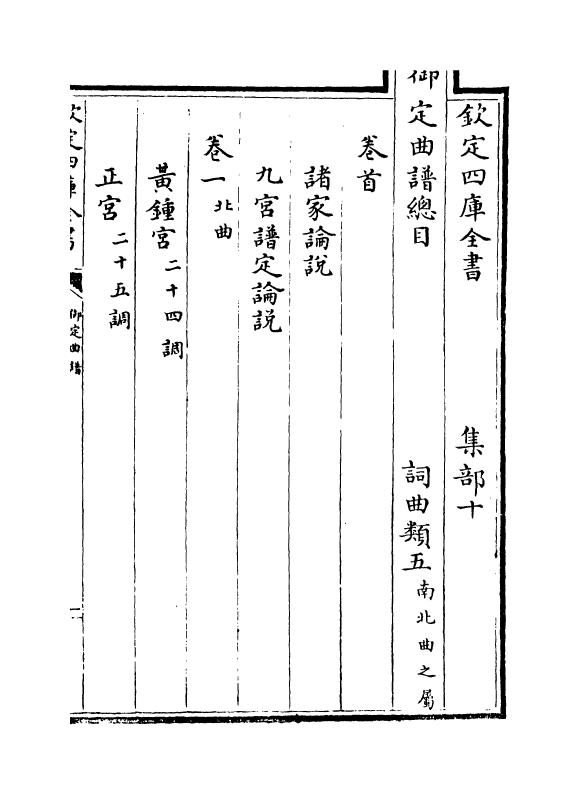 欽定四庫全書　集部十
御定曲譜總目　詞曲類五南北曲之屬
卷首
諸家論說
九宮譜定論説
卷一北曲
黃鍾宮二十四調
正宮二十五調
欽定四庫全書　御定曲譜　一